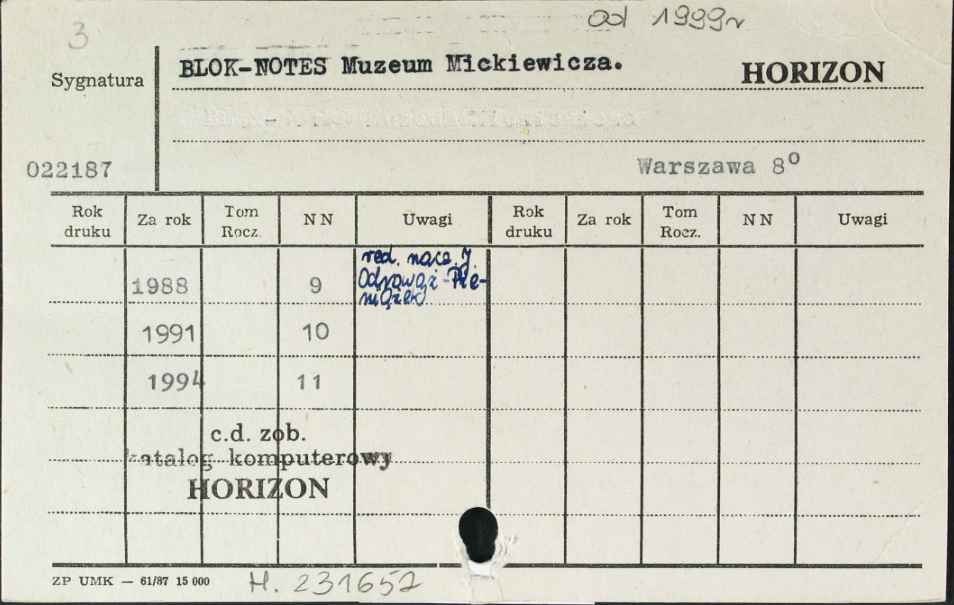 3
od 1999r
Sygnatura
BLOK-NOTES Muzeum Mickiewicza.
HORIZON
022187
Warszawa 8⁰
Rok druku Za rok Tom Rocz. N N Uwagi Rok druku Za rok Tom Rocz. N N Uwagi
red. nacz. J.
1988 9 Odrowąż-Pie-
niążek
1991 10
1994 11
c.d. zob.
katalog komputerowy
HORIZON
ZP UMK — 61/87 15 000
H. 231652